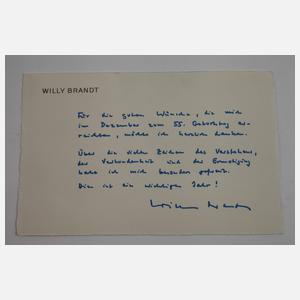 WILLY BRANDT
Für die guten Wünsche, die mich
im Dezember zum 55. Geburtstag er-
reichten, möchte ich herzlich danken.
Über die vielen Zeichen des Verstehens,
der Verbundenheit und der Ermutigung
habe ich mich besonders gefreut.
Dies ist ein wichtiges Jahr!
Willy Brandt